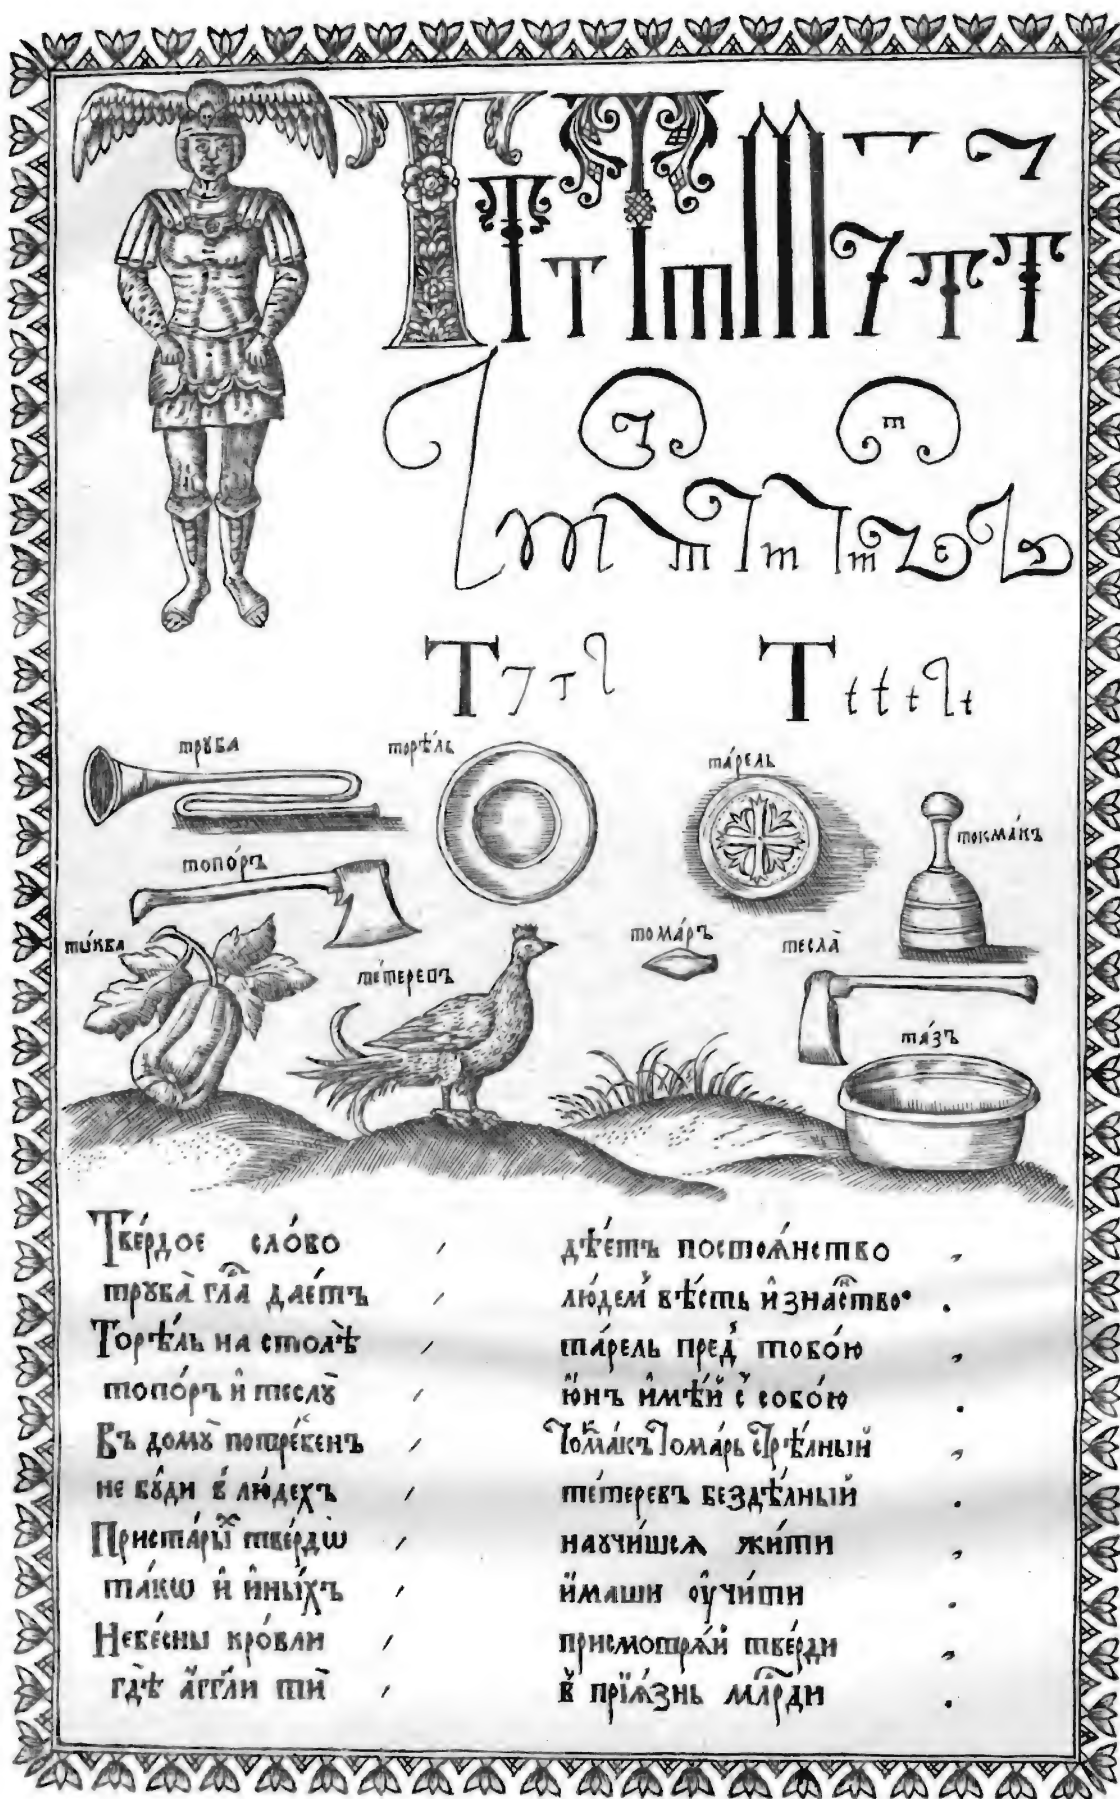 Т Т т Т т т т т т т т
Т т т т
Т t t t t
трꙋба
торѣ́ль
та́рель
токма́къ
топо́ръ
ты́ква
те́теревъ
тома́ръ
тесла̀
та́зъ
Тве́рдое сло́во , дѣ́етъ постоѧ́нство ,
трꙋба̀ гла̑ дае́тъ , лю́дем̾ вѣ́сть и҆ зна́ⷩ҇ство .
Торѣ́ль на столѣ̀ , та́рель пред̾ тобо́ю ,
топо́ръ и҆ теслꙋ̀ , ю҆́нъ и҆мѣ́й с̾ собо́ю .
Въ домꙋ̀ потре́бенъ , То́кма́къ Тома́рь Стрѣ́лный ,
не бꙋ́ди в̾ лю́дехъ , те́теревъ бездѣ́лный .
При ста́рыⷯ тве́рдѡ , наꙋчи́шсѧ жи́ти ,
та́кѡ и҆ и҆ны́хъ , и҆́маши оу҆чи́ти .
Небе́сны кро́вли , присмотрѧ́й тве́рди ,
гдѣ̀ а҆́гг҃ли ти̑ , в̾ прїѧ́знь мл҇рди .